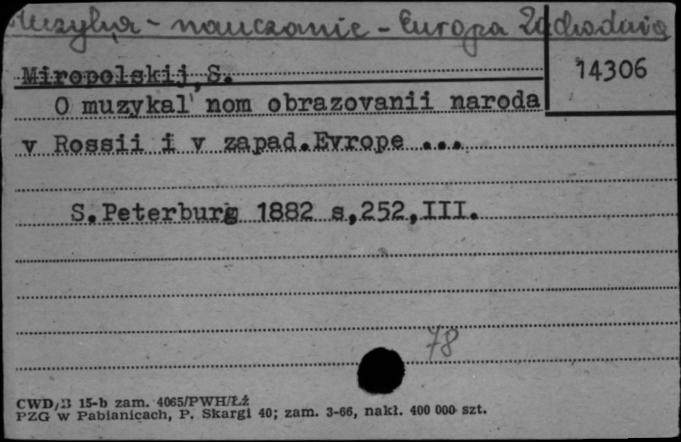 Muzyka - nauczanie - Europa Zachodnia
14306
Miropolskij, S.
O muzykal'nom obrazovanii naroda
v Rossii i v zapad.Evrope ...
S.Peterburg 1882 s,252,III.
78
CWD/B 15-b zam. 4065/PWH/Łź
PZG w Pabianicach, P. Skargi 40; zam. 3-66, nakł. 400 000 szt.